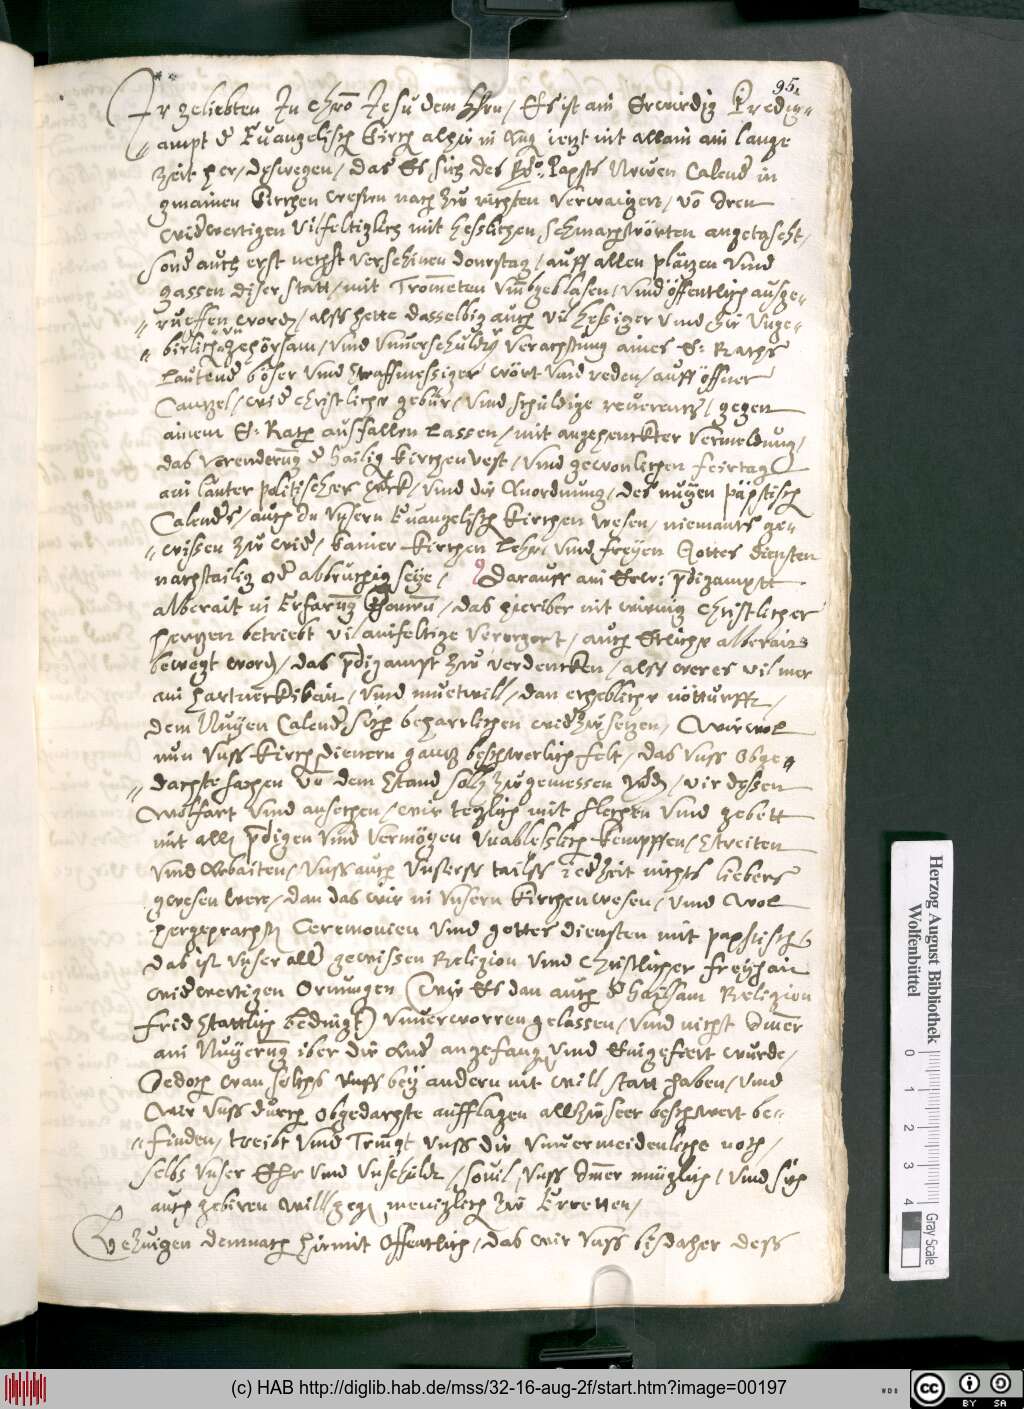 95.
Ir geliebten In Christo Jesu dem Herrn / Es ist ain Erwirdig Predig=
ampt der Euangelisch Kirch alhir in Aug ietzt nit allain ain lange
zeit her / deswegen / das Es sich des Bapsts Newen Calend in
gmainen Kirchen wesen nach zu richten verwaigert / von dren
widwertigen vilfeltiglich mit hesslichen schmachwörten angetascht /
sond auch erst nechst verschinen donrstag / auff allen plätzen vnd
gassen diser statt / mit Trometen vmbgeblasen / vnd öffentlich ausge=
rueffen word / alss hette dasselbig auch vil hessiger vnd zu vnge=
birlich vngehörsam / vnd vnuerschuldter verachtung aines E: Raths
lautend böser vnd straffmessiger wört vnd reden / auff öffner
Cantzel / wid christliche gebür / vnd schuldige reuerentz / gegen
ainem E: Rath ausfallen lassen / mit angehenckter vermeldung /
das verenderung der hailig kirchen vest / vnd gewonlichen feirtag
ain lauter politisches werk / vnd die Anordnung / des nuyen päpstisch
Calenders / auch dem vnsern Euangelisch Kirchen wesen / niemants ge=
wissen zu wid / kainer kirchen lehr vnd freyen Gottes diensten
nachtailig oder abbruchig seye / Darauss ain Erw: predigampt
alberait in Erfarung kommen / das hieriber nit wenig christlicher
hertzen betriebt vil ainfeltige verergert / auch Etliche alberait
bewegt word / das predigampt zu verdencken / alss were es vil mer
ain hartneckikait / vnd muetwill / dan erheblicher notturfft /
dem Nuyen Calender sich beharrlichen wid zu setzen / Wie wol
nun vnss kirch dienern gantz beschwerlich felt / das vnss obge=
dachte sachen von dem stand sollen zugemessen werden / vir dessen
wolfart vnd ansechen / wir teglich mit flechen vnd gebett
mit allen predigen vnd vermögen vnablesslich kempffen / streiten
vnd Arbaiten / vnss auch vnserss tailss ied zeit nichts liebers
gwesen were / dan das wir in vnsern kirchen wesen / vnd wol
hergeprachten Ceremonien vnd gottes diensten mit papstischen
das ist vnser aller gewissen Religion vnd christlicher freyhait
widwertigen ornungen (wie Es dan auch der hailsam Religion
frid stattlich bedingt) vnuerworren gelassen / vnd nicht
ain Nuyerung iber die And angefang vnd Eingefiert wurde /
Jedoch wan solchs vnss bey andern nit will statt haben / vnd
wir vnss durch obgedachte aufflagen allzu seer beschwert be=
finden / treibt vnd Tringt vnss die vnuermeidenliche noth /
selbs vnser Ehr vnd vnschuld / souil vnss Immer müglich / vnd sich
auch gebiren will / geg meniglich zu Erretten /
Bezeugen demnach hiemit Offentlich / das wir vnss bisdaher dess
Herzog August Bibliothek
Wolfenbüttel
0 1 2 3 4
Gray Scale
(c) HAB http://diglib.hab.de/mss/32-16-aug-2f/start.htm?image=00197
WDB
cc BY SA